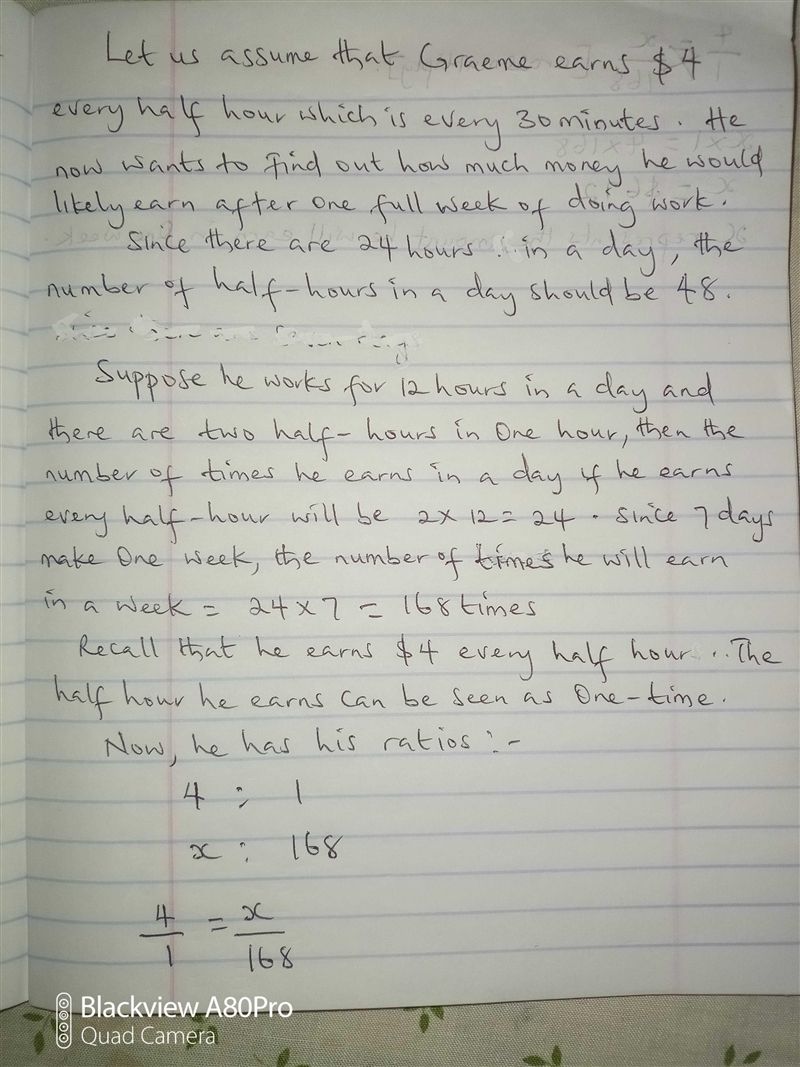 Let us assume that Graeme earns $4
every half hour which is every 30 minutes. He
now wants to find out how much money he would
likely earn after one full week of doing work.
Since there are 24 hours in a day, the
number of half-hours in a day should be 48.
Suppose he works for 12 hours in a day and
there are two half-hours in One hour, then the
number of times he earns in a day if he earns
every half-hour will be 2 x 12 = 24. Since 7 days
make One week, the number of times he will earn
in a week = 24 x 7 = 168 times
Recall that he earns $4 every half hour. The
half hour he earns can be seen as One-time.
Now, he has his ratios :-
4 : 1
x : 168
4/1 = x/168
Blackview A80Pro
Quad Camera